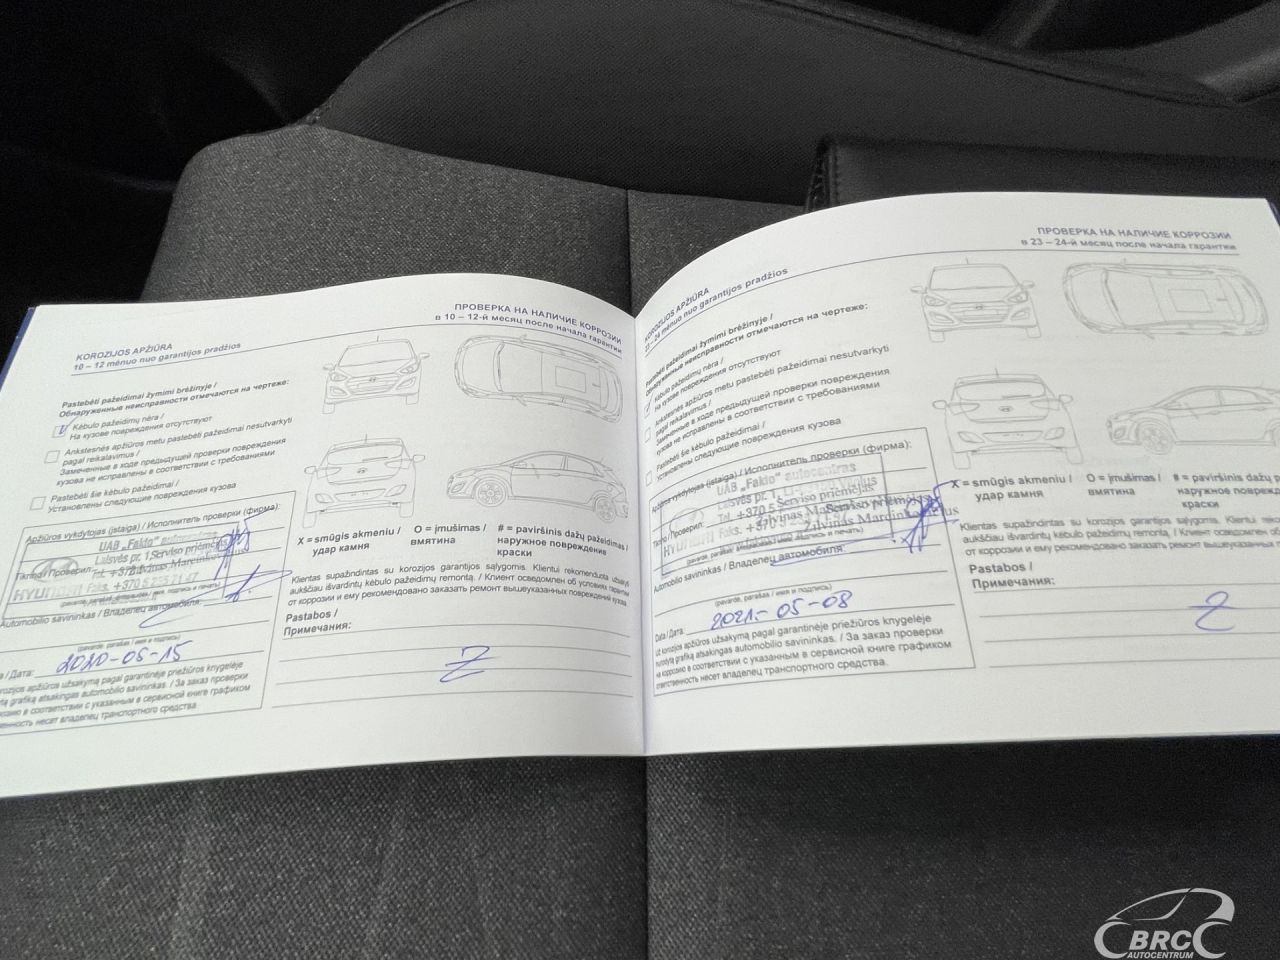 KOROZIJOS APŽIŪRA
10 – 12 mėnuo nuo garantijos pradžios
ПРОВЕРКА НА НАЛИЧИЕ КОРРОЗИИ
в 10 – 12-й месяц после начала гарантии
Pastebėti pažeidimai žymimi brėžinyje /
Обнаруженные неисправности отмечаются на чертеже:
Kėbulo pažeidimų nėra /
На кузове повреждения отсутствуют
Ankstesnės apžiūros metu pastebėti pažeidimai nesutvarkyti
pagal reikalavimus /
Замеченные в ходе предыдущей проверки повреждения
кузова не исправлены в соответствии с требованиями
Pastebėti šie kėbulo pažeidimai /
Установлены следующие повреждения кузова
Apžiūros vykdytojas (įstaiga) / Исполнитель проверки (фирма):
UAB „Fakto“ autocentras
Laisvės pr. Serviso priėmėjas
Tikrino / Проверил:
Tel. +370 Žilvinas Marcinkevičius
HYUNDAI Faks. +370 5
(pavardė, parašas / имя и подпись)
Automobilio savininkas / Владелец автомобиля:
(pavardė, parašas / имя и подпись)
/ Дата: 2020-05-15
korozijos apžiūros užsakymą pagal garantinėje priežiūros knygelėje
grafiką atsakingas automobilio savininkas. / За заказ проверки
в соответствии с указанным в сервисной книге графиком
несет владелец транспортного средства.
X = smūgis akmeniu /
удар камня
O = įmušimas /
вмятина
# = paviršinis dažų pažeidimas /
наружное повреждение
краски
Klientas supažindintas su korozijos garantijos sąlygomis. Klientui rekomenduota užsakyti
aukščiau išvardintų kėbulo pažeidimų remontą. / Клиент осведомлен об условиях гарантии
от коррозии и ему рекомендовано заказать ремонт вышеуказанных повреждений кузова
Pastabos /
Примечания:
Z
KOROZIJOS APŽIŪRA
23 – 24 mėnuo nuo garantijos pradžios
ПРОВЕРКА НА НАЛИЧИЕ КОРРОЗИИ
в 23 – 24-й месяц после начала гарантии
Pastebėti pažeidimai žymimi brėžinyje /
Обнаруженные неисправности отмечаются на чертеже:
Kėbulo pažeidimų nėra /
На кузове повреждения отсутствуют
Ankstesnės apžiūros metu pastebėti pažeidimai nesutvarkyti
pagal reikalavimus /
Замеченные в ходе предыдущей проверки повреждения
кузова не исправлены в соответствии с требованиями
Pastebėti šie kėbulo pažeidimai /
Установлены следующие повреждения кузова
Apžiūros vykdytojas (įstaiga) / Исполнитель проверки (фирма):
UAB „Fakto“ autocentras
Laisvės pr. Vilnius
Serviso priėmėjas
Tikrino / Проверил:
Tel. +370 5
HYUNDAI Faks. +370 5 Žilvinas Marcinkevičius
(pavardė, parašas / имя и подпись)
Automobilio savininkas / Владелец автомобиля:
(pavardė, parašas / имя и подпись)
Data / Дата: 2021-05-08
Už korozijos apžiūros užsakymą pagal garantinėje priežiūros knygelėje
nurodytą grafiką atsakingas automobilio savininkas. / За заказ проверки
на коррозию в соответствии с указанным в сервисной книге графиком
ответственность несет владелец транспортного средства.
X = smūgis akmeniu /
удар камня
O = įmušimas /
вмятина
# = paviršinis dažų
наружное
краски
Klientas supažindintas su korozijos garantijos sąlygomis. Klientui
aukščiau išvardintų kėbulo pažeidimų remontą. / Клиент осведомлен об
от коррозии и ему рекомендовано заказать ремонт вышеуказанных
Pastabos /
Примечания:
Z
BRC
AUTOCENTRUM